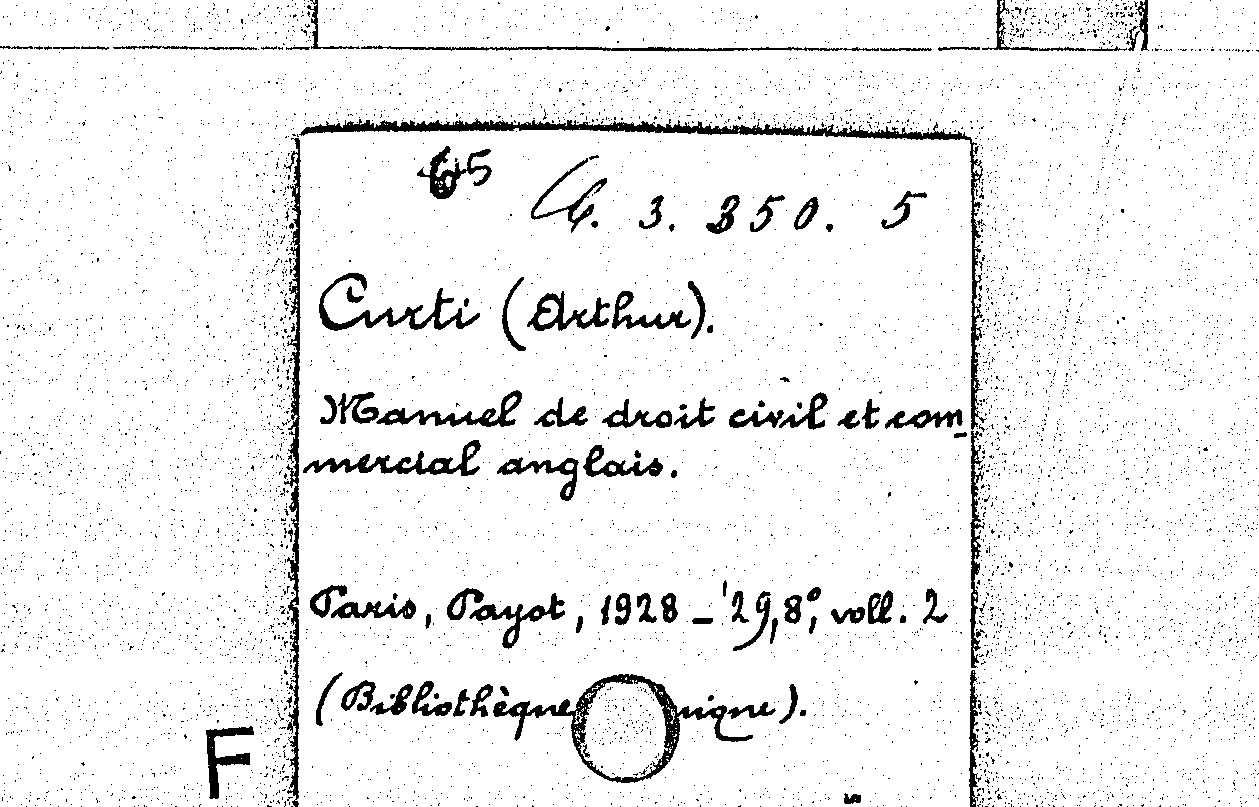 65
C. 3. 350. 5
Curti (Arthur).
Manuel de droit civil et com-
mercial anglais.
Paris, Payot, 1928-'29, 8°, voll. 2
(Bibliothèque nique).
F